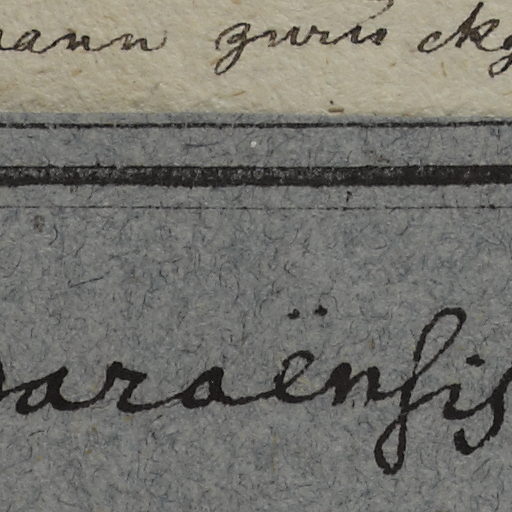 mann zurück
paraënsis